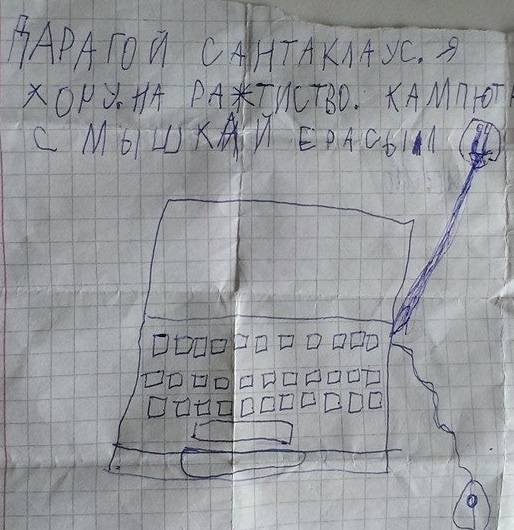 ДАРАГОЙ САНТАКЛАУС. Я
ХОЧУ. НА РАЖТИСТВО. КАМПЮТ
С МЫШКАЙ ЕРАСЫЛ